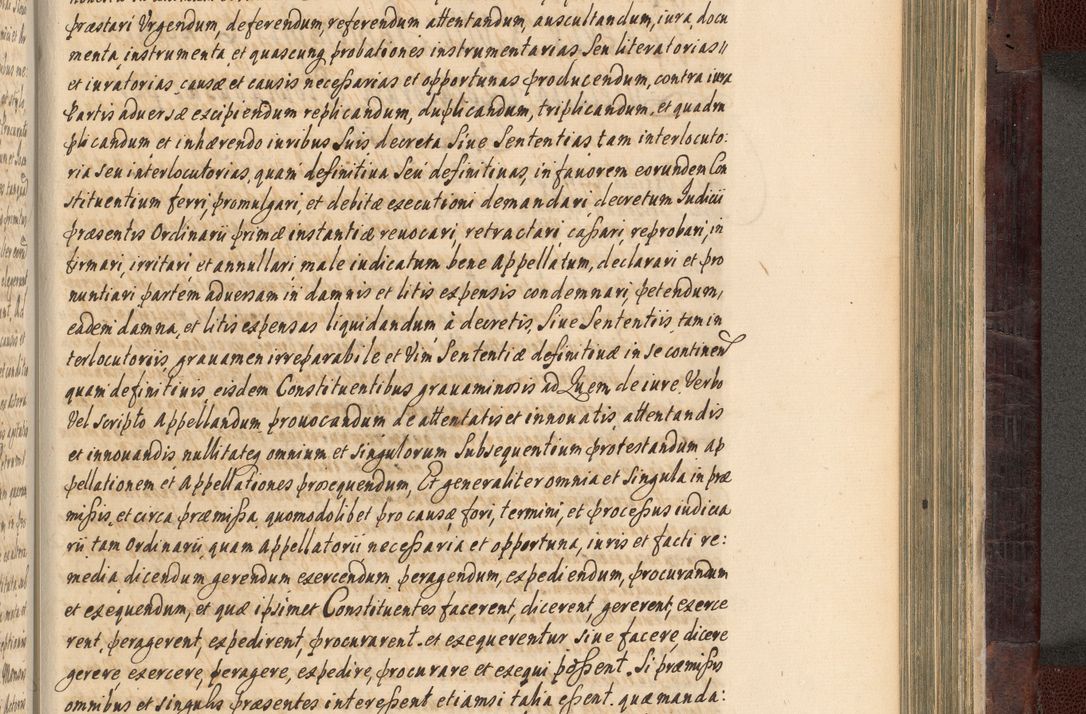 præstari Urgendum, deferendum, referendum attentandum, auscultandum, iura, docu
menta, instrumenta et quascunq probationes instrumentarias Seu literatorias
et iuratorias causæ et causis necessarias et opportunas producendum, contra iura
Partis adversæ excipiendum replicandum, duplicandum, triplicandum, et quadru
plicandum et inhærendo iuribus Suis decreta Siue Sententias tam interlocuto:
ria seu interlocutorias, quam definitiua Seu definitiuas, in fauorem eorunden Con
stituentium ferri, promulgari, et debitæ executioni demandari, decretum Iudicii
præsentis Ordinarii primæ instantiæ reuocari, retractari, cassari, reprobari, in
firmari, irritari et annullari male iudicatum bene Appellatum, declarari et pro
nuntiari partem aduersam in damnis et litis expensis condemnari, petendum,
eadem damna, et litis expensas liquidandum, à decretis, Siue Sententiis, tam in
terlocutoriis, grauamen irreparabile et Vim Sententiæ definitiuæ in se continen
quam definitiuis, eisdem Constituentibus grauaminosis ad Quem, de iure, Verbo
Vel scripto Appellandum, prouocandum de attentatis et innouatis, attentandis
et innouandis nullitateq omnium et singulorum Subsequentium protestandum ap
pellationem et Appellationes prosequendum, Et generaliter omnia et Singula in præ
missis, et circa præmissa, quomodolibet pro causæ, fori, termini, et processus iudicia
rii tam Ordinarii, quam Appellatorii necessaria et opportuna, iuris et facti re:
media, dicendum gerendum exercendum peragendum, expediendum, procurandum
et exequendum, et quæ ipsimet Constituentes facerent, dicerent, gererent, exerce
rent, peragerent, expedirent, procurarent, et exequerentur Siue facere, dicere
gerere, exercere, peragere, expedire, procurare et exequi possent. Si præmissis
omnibus et singulis præsentes interessent etiamsi talia essent, quæ manda: